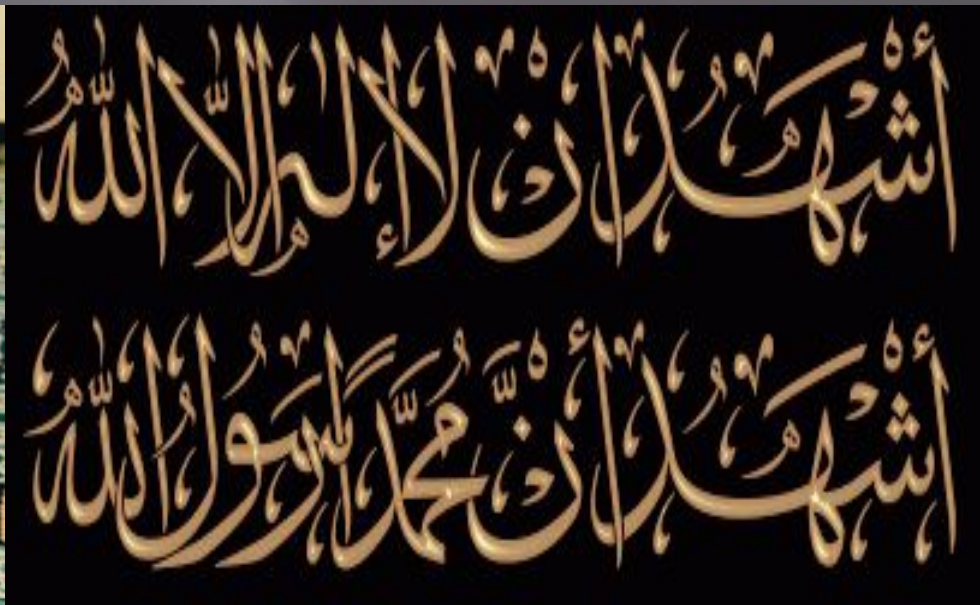 أشهد ان لا إله إلا الله
أشهد أن محمدا رسول الله